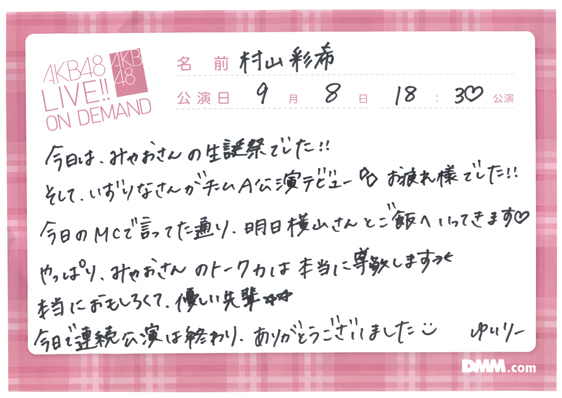 AKB48
LIVE!!
ON DEMAND
AKB
48
名前 村山彩希
公演日 9月8日 18:30公演
今日は、みゃおさんの生誕祭でした!!
そして、いずりなさんがチームA公演デビュー お疲れ様でした!!
今日のMCで言ってた通り、明日横山さんとご飯へいってきます♡
やっぱり、みゃおさんのトークカは本当に尊敬しますっ
本当におもしろくて、優しい先輩☆☆
今日で連続公演は終わり、ありがとうございました ゆいりー
DMM.com